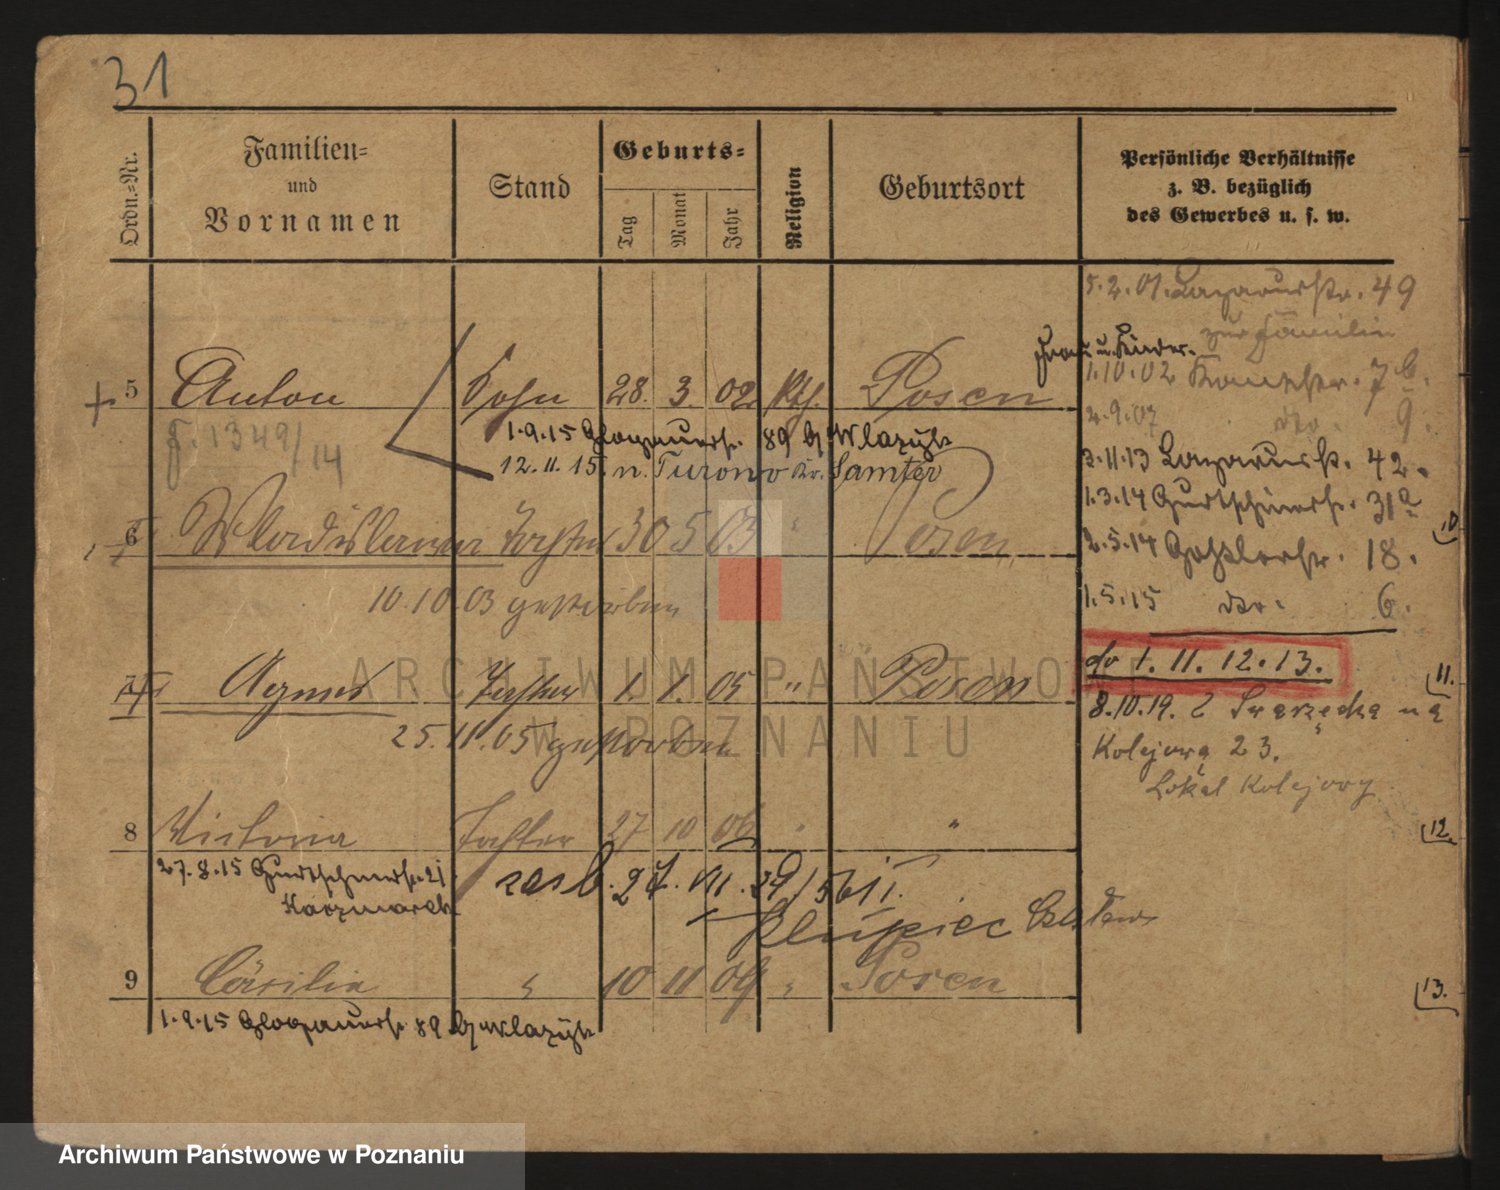 31
Ordn.=Nr.
Familien=
und
Vornamen
Stand
Geburts=
Tag
Monat
Jahr
Religion
Geburtsort
Persönliche Verhältnisse
z. B. bezüglich
des Gewerbes u. s. w.
5.2.01. Lazarusstr. 49
zur Familie
Frau u. Kinder.
1.10.02 7b.
5 Anton Sohn 28. 3. 02 kth. Posen
2.9.07 do. 9.
F. 1349/14
1.9.15 Glogauerstr. 89
12.11.15. n. Turowo Kr. Samter
3.11.13 Lazarusstr. 42.
1.3.14 Gurtschinerstr. 31a
6 Wladislawa Tochter 30 5 03 " Posen
2.5.14 Goßlerstr. 18.
10.10.03 gestorben
1.5.15 do. 6.
do 1. 11. 12. 13.
7 Agnes Tochter 1. 1. 05 " Posen
25.11.05 gestorben
8.10.19. Z Swarzędza na
Kolejową 23.
Lokal Kolejowy
8 Victoria Tochter 27 10 06 " "
27.8.15 Gurtschinerstr. 21
Kaczmarek
zasl. 27. VII. 29/561 I.
Klupiec
9 Cäsilia " 10 11 09 " Posen
1.9.15 Glogauerstr. 89
10
11.
12.
13.
ARCHIWUM PAŃSTWOWE
W POZNANIU
Archiwum Państwowe w Poznaniu